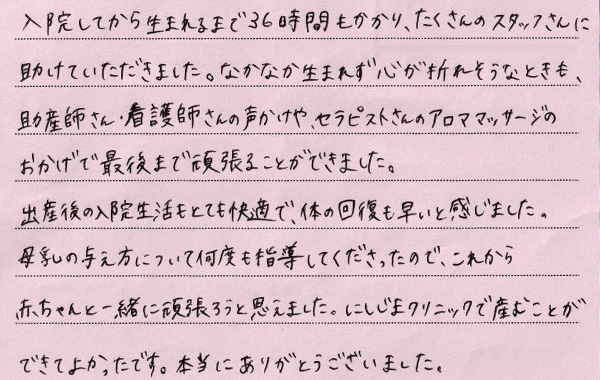 入院してから生まれるまで36時間もかかり、たくさんのスタッフさんに
助けていただきました。なかなか生まれず心が折れそうなときも、
助産師さん・看護師さんの声かけや、セラピストさんのアロママッサージの
おかげで最後まで頑張ることができました。
出産後の入院生活もとても快適で、体の回復も早いと感じました。
母乳の与え方について何度も指導してくださったので、これから
赤ちゃんと一緒に頑張ろうと思えました。にしじまクリニックで産むことが
できてよかったです。本当にありがとうございました。